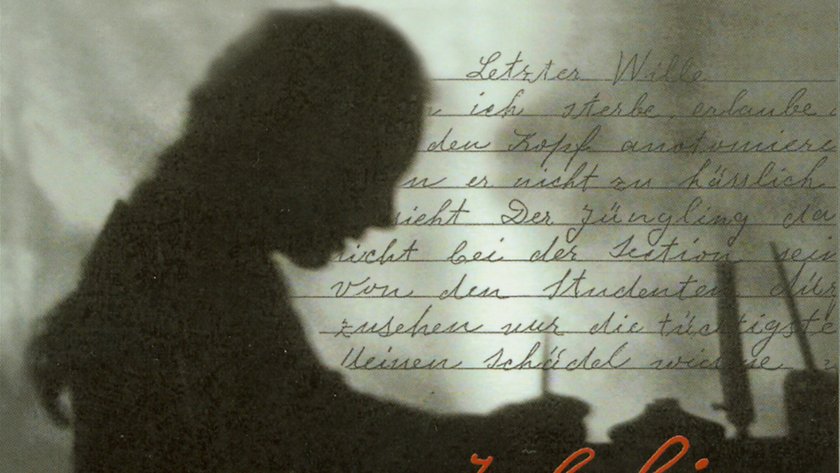 Letzter Wille
ich sterbe, erlaube
den Kopf anatomiere
er nicht zu hässlich
sieht Der Jüngling da
nicht bei der Section sein
Von den Studenten dür
zusehen nur die tüchtigste
Meinen Schädel widme